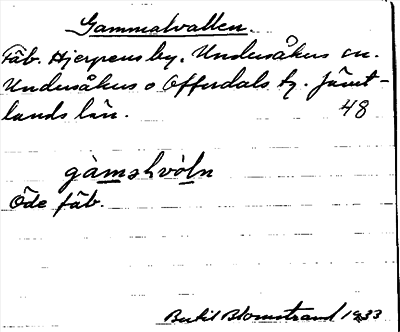 Gammalvallen.
Fäb. Hjerpens by. Undersåkers sn.
Undersåkers o Offerdals tg. Jämt-
lands län. 48
gàmshvòln
Öde fäb.
Bertil Blomstrand 1933